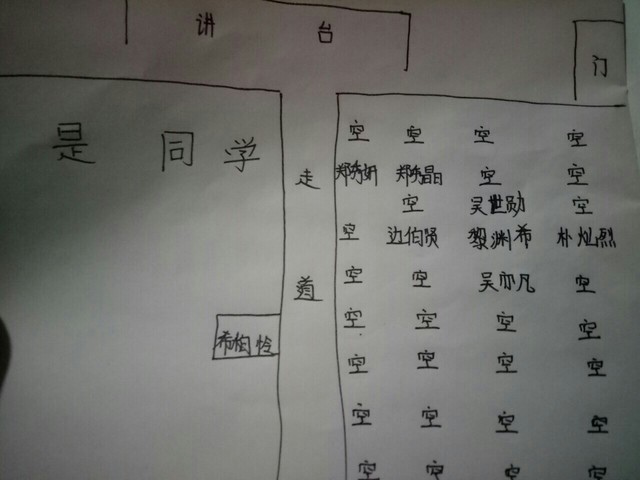 讲 台
门
是 同 学
走道
空 空 空 空
郑秀妍 郑秀晶 空 空
空 吴世勋 空
空 边伯贤 黎渊希 朴灿烈
空 空 吴亦凡 空
希柏怜
空 空 空 空
空 空 空 空
空 空 空 空
空 空 空 空